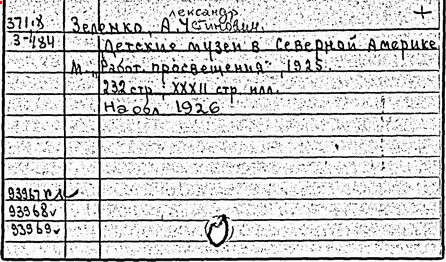 лександр +
371.8 Зеленко, А. Устинович.
З-484 Детские музеи в Северной Америке
М., "Работ. просвещения", 1925.
232 стр; XXXII стр. илл.
На обл. 1926
93967 кл ✓
93968 ✓
93969 ✓